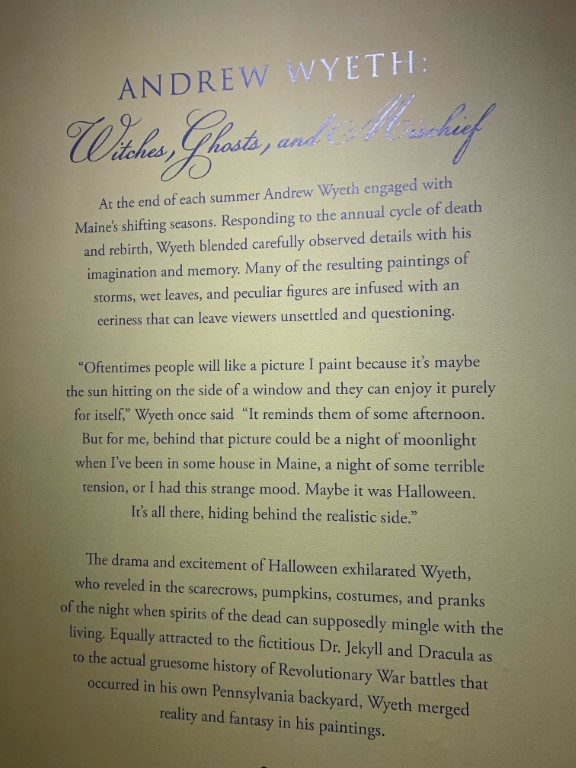 ANDREW WYETH:
Witches, Ghosts, and Mischief
At the end of each summer Andrew Wyeth engaged with
Maine's shifting seasons. Responding to the annual cycle of death
and rebirth, Wyeth blended carefully observed details with his
imagination and memory. Many of the resulting paintings of
storms, wet leaves, and peculiar figures are infused with an
eeriness that can leave viewers unsettled and questioning.
“Oftentimes people will like a picture I paint because it's maybe
the sun hitting on the side of a window and they can enjoy it purely
for itself,” Wyeth once said “It reminds them of some afternoon.
But for me, behind that picture could be a night of moonlight
when I've been in some house in Maine, a night of some terrible
tension, or I had this strange mood. Maybe it was Halloween.
It's all there, hiding behind the realistic side.”
The drama and excitement of Halloween exhilarated Wyeth,
who reveled in the scarecrows, pumpkins, costumes, and pranks
of the night when spirits of the dead can supposedly mingle with the
living. Equally attracted to the fictitious Dr. Jekyll and Dracula as
to the actual gruesome history of Revolutionary War battles that
occurred in his own Pennsylvania backyard, Wyeth merged
reality and fantasy in his paintings.